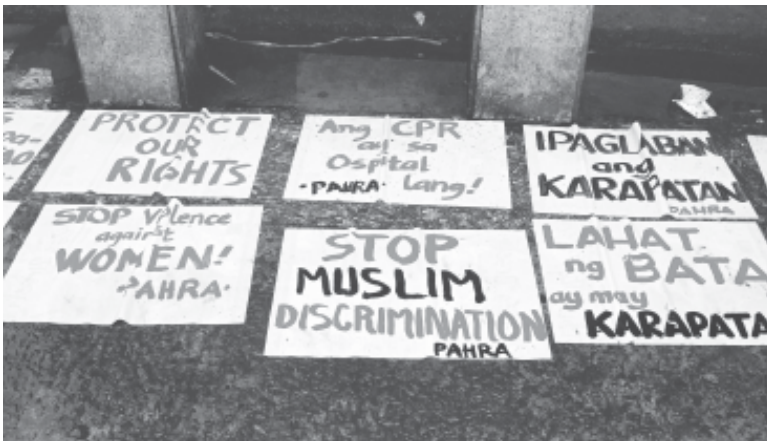 PROTECT
OUR
RIGHTS
Ang CPR
ay sa
Ospital
·PAHRA· lang!
IPAGLABAN
ang
KARAPATAN
PAHRA
STOP Violence
against
WOMEN!
·PAHRA·
STOP
MUSLIM
DISCRIMINATION
PAHRA
LAHAT
ng BATA
ay may
KARAPATA